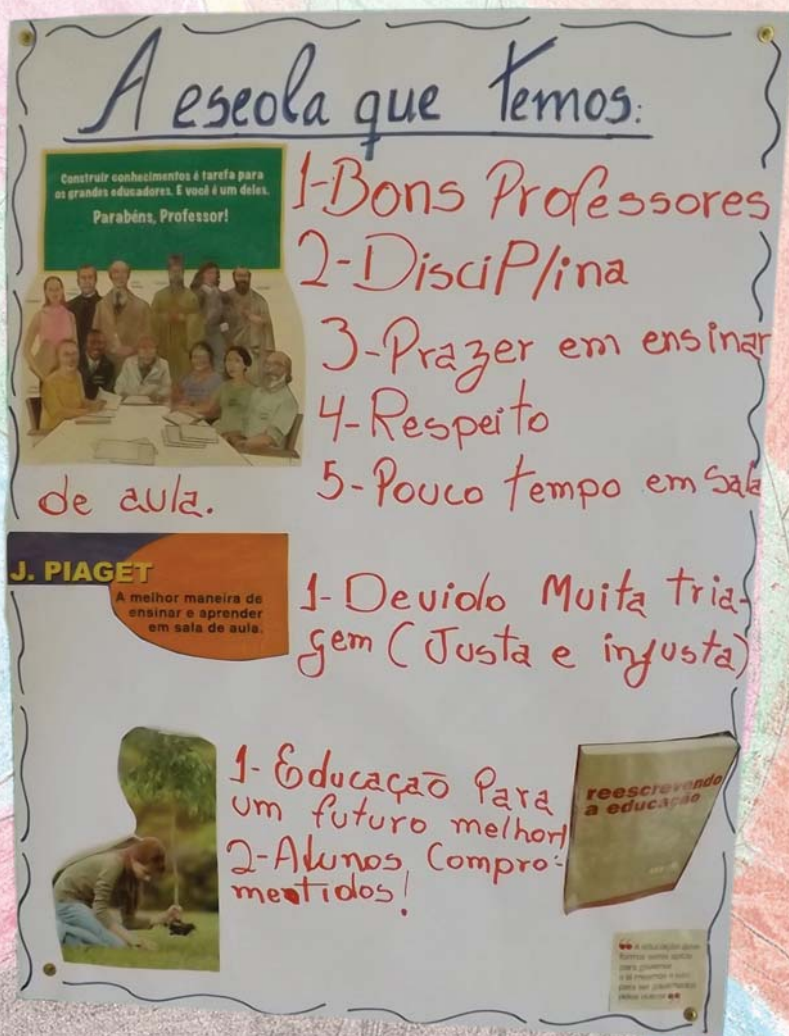 A escola que temos:
Construir conhecimentos é tarefa para
os grandes educadores. E você é um deles.
Parabéns, Professor!
1-Bons Professores
2-Disciplina
3-Prazer em ensinar
4-Respeito
5-Pouco tempo em Sala
de aula.
J. PIAGET
A melhor maneira de
ensinar e aprender
em sala de aula.
1-Devido Muita tria-
gem (Justa e injusta)
1-Educação Para
um futuro melhor!
2-Alunos Compro-
metidos!
reescrevendo
a educação